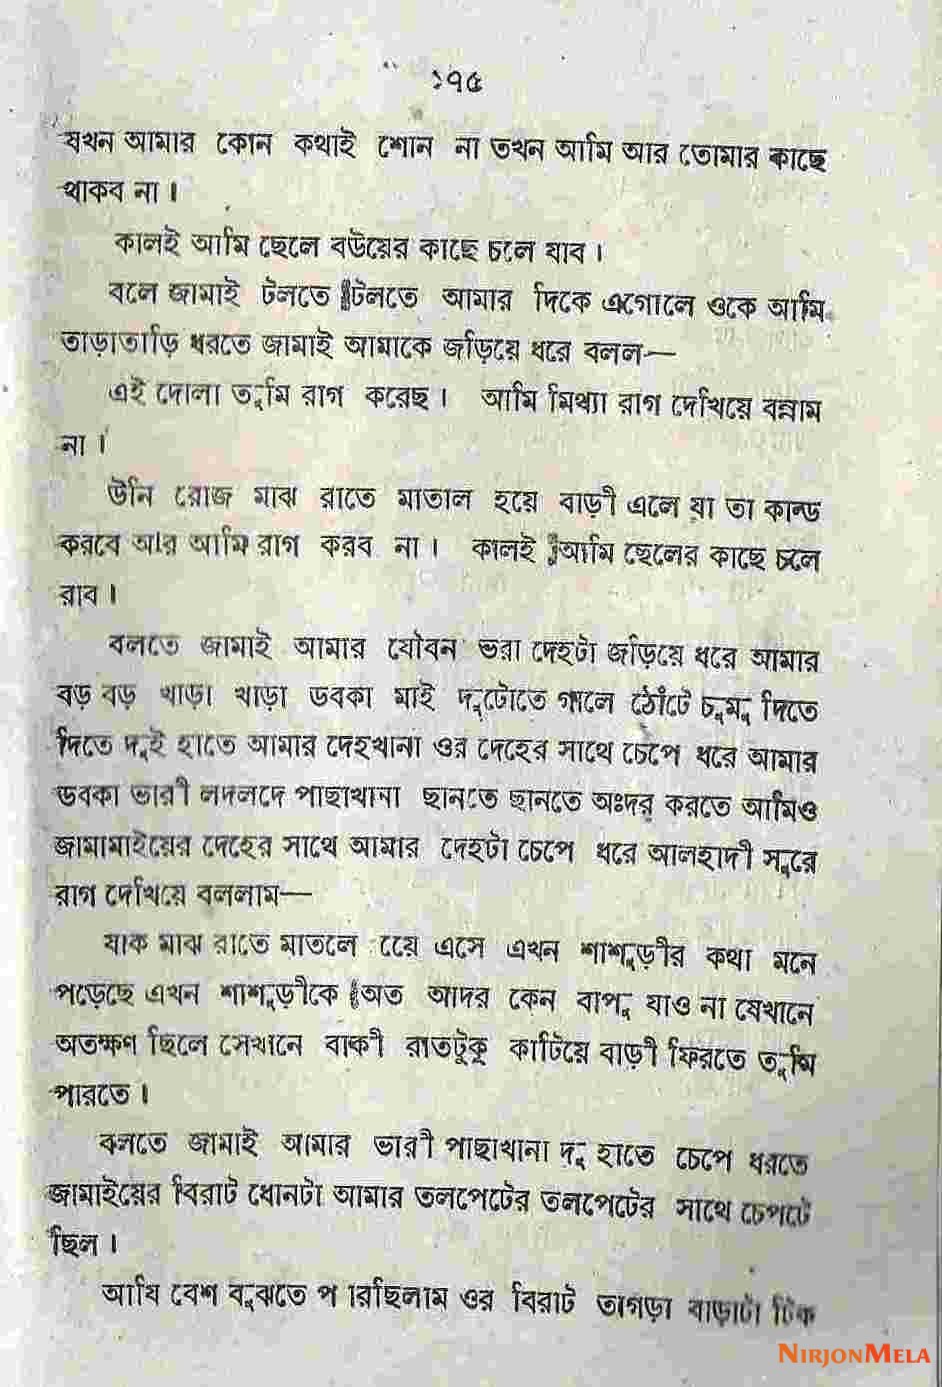 ১৭৫
যখন আমার কোন কথাই শোন না তখন আমি আর তোমার কাছে
থাকব না ।
কালই আমি ছেলে বউয়ের কাছে চলে যাব ।
বলে জামাই টলতে টলতে আমার দিকে এগোলে ওকে আমি
তাড়াতাড়ি ধরতে জামাই আমাকে জড়িয়ে ধরে বলল—
এই দোলা তুমি রাগ করেছ । আমি মিথ্যা রাগ দেখিয়ে বল্লাম
না ।
উনি রোজ মাঝ রাতে মাতাল হয়ে বাড়ী এলে যা তা কান্ড
করবে আর আমি রাগ করব না । কালই আমি ছেলের কাছে চলে
রাব ।
বলতে জামাই আমার যৌবন ভরা দেহটা জড়িয়ে ধরে আমার
বড় বড় খাড়া খাড়া ডবকা মাই দুটোতে গালে ঠোঁটে চুমু দিতে
দিতে দুই হাতে আমার দেহখানা ওর দেহের সাথে চেপে ধরে আমার
ডবকা ভারী লদলদে পাছাখানা ছানতে ছানতে অঃদর করতে আমিও
জামামাইয়ের দেহের সাথে আমার দেহটা চেপে ধরে আলহাদী সুরে
রাগ দেখিয়ে বললাম—
যাক মাঝ রাতে মাতলে য়ে এসে এখন শাশুড়ীর কথা মনে
পড়েছে এখন শাশুড়ীকে অত আদর কেন বাপু যাও না যেখানে
অতক্ষণ ছিলে সেখানে বাকী রাতটুকু কাটিয়ে বাড়ী ফিরতে তুমি
পারতে ।
বলতে জামাই আমার ভারী পাছাখানা দু হাতে চেপে ধরতে
জামাইয়ের বিরাট ধোনটা আমার তলপেটের তলপেটের সাথে চেপটে
ছিল ।
আমি বেশ বুঝতে প ারছিলাম ওর বিরাট তাগড়া বাড়াটা ঠিক
NIRJONMELA